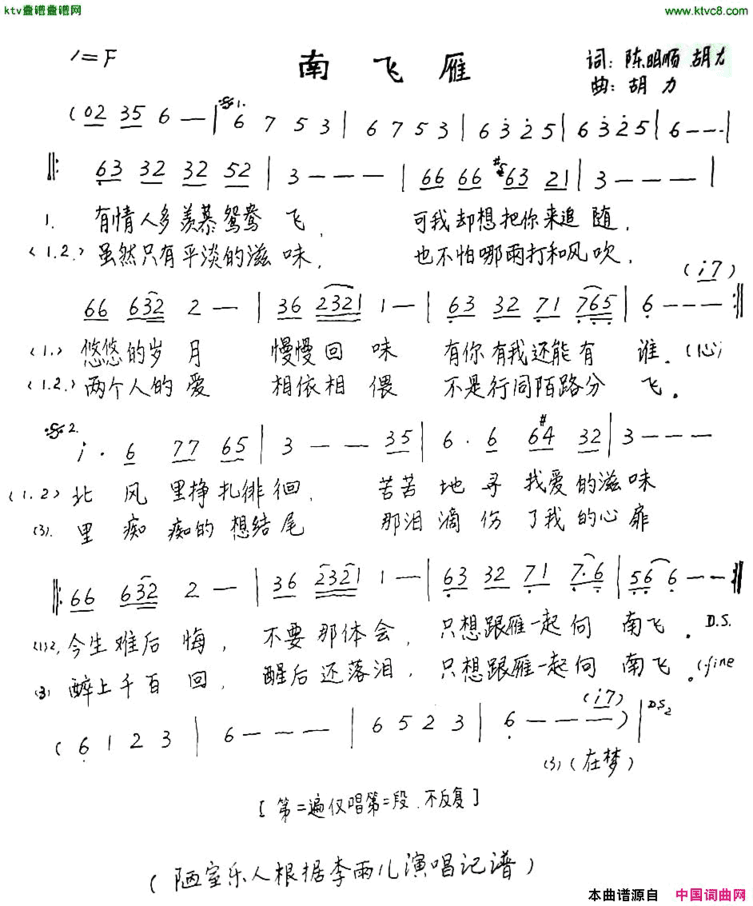 ktv曲谱曲谱网 www.ktvc8.com
1=F 南飞雁 词：陈明顺 胡力
曲：胡力
(02 35 6 — | 𝄋1. 6 7 5 3 | 6 7 5 3 | 6 3 2 5 | 6 3 2 5 | 6 - - - |
‖: 63 32 32 52 | 3 - - - | 66 66 #63 21 | 3 - - - |
1. 有情人多羡慕鸳鸯飞， 可我却想把你来追随，
(1.2.) 虽然只有平淡的滋味， 也不怕哪雨打和风吹，
(i7)
66 632 2 — | 36 2321 1 — | 63 32 71 765 | 6 - - - :‖
(1.) 悠悠的岁月 慢慢回味 有你有我还能有谁。(心)
(1.2.) 两个人的爱 相依相偎 不是行同陌路分飞。
𝄋2. i · 6 77 65 | 3 - - 35 | 6 · 6 6#4 32 | 3 - - -
(1.2) 北风里挣扎徘徊， 苦苦地寻我爱的滋味
(3). 里痴痴的想结尾 那泪滴伤了我的心扉
‖: 66 632 2 — | 36 2321 1 — | 63 32 71 7·6 | 56 6 - - :‖
(1)2, 今生难后悔， 不要那体会， 只想跟雁一起向南飞。D.S.
(3) 醉上千百回， 醒后还落泪， 只想跟雁一起向南飞。(fine
(i7)
( 6 1 2 3 | 6 - - - | 6 5 2 3 | 6 - - - ) | D.S2
(3) (在梦)
[第二遍仅唱第二段，不反复]
(陋室乐人根据李雨儿演唱记谱)
本曲谱源自 中国词曲网